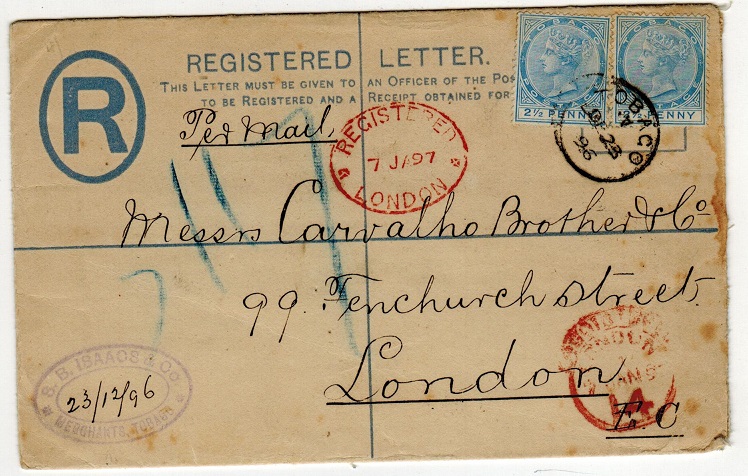 R
REGISTERED LETTER.
THIS LETTER MUST BE GIVEN TO AN OFFICER OF THE POS
TO BE REGISTERED AND A RECEIPT OBTAINED FOR
TOBAGO
POSTA
2½ PENNY
TOBAGO
POSTA
2½ PENNY
TOBAGO
DE 23
96
Per Mail,
REGISTERED
7 JA 97
LONDON
Messrs Carvalho Brother & Co
99. Fenchurch street.
London
E.C
14
S. B. ISAACS & Co.
23/12/96
MERCHANTS, TOBAGO